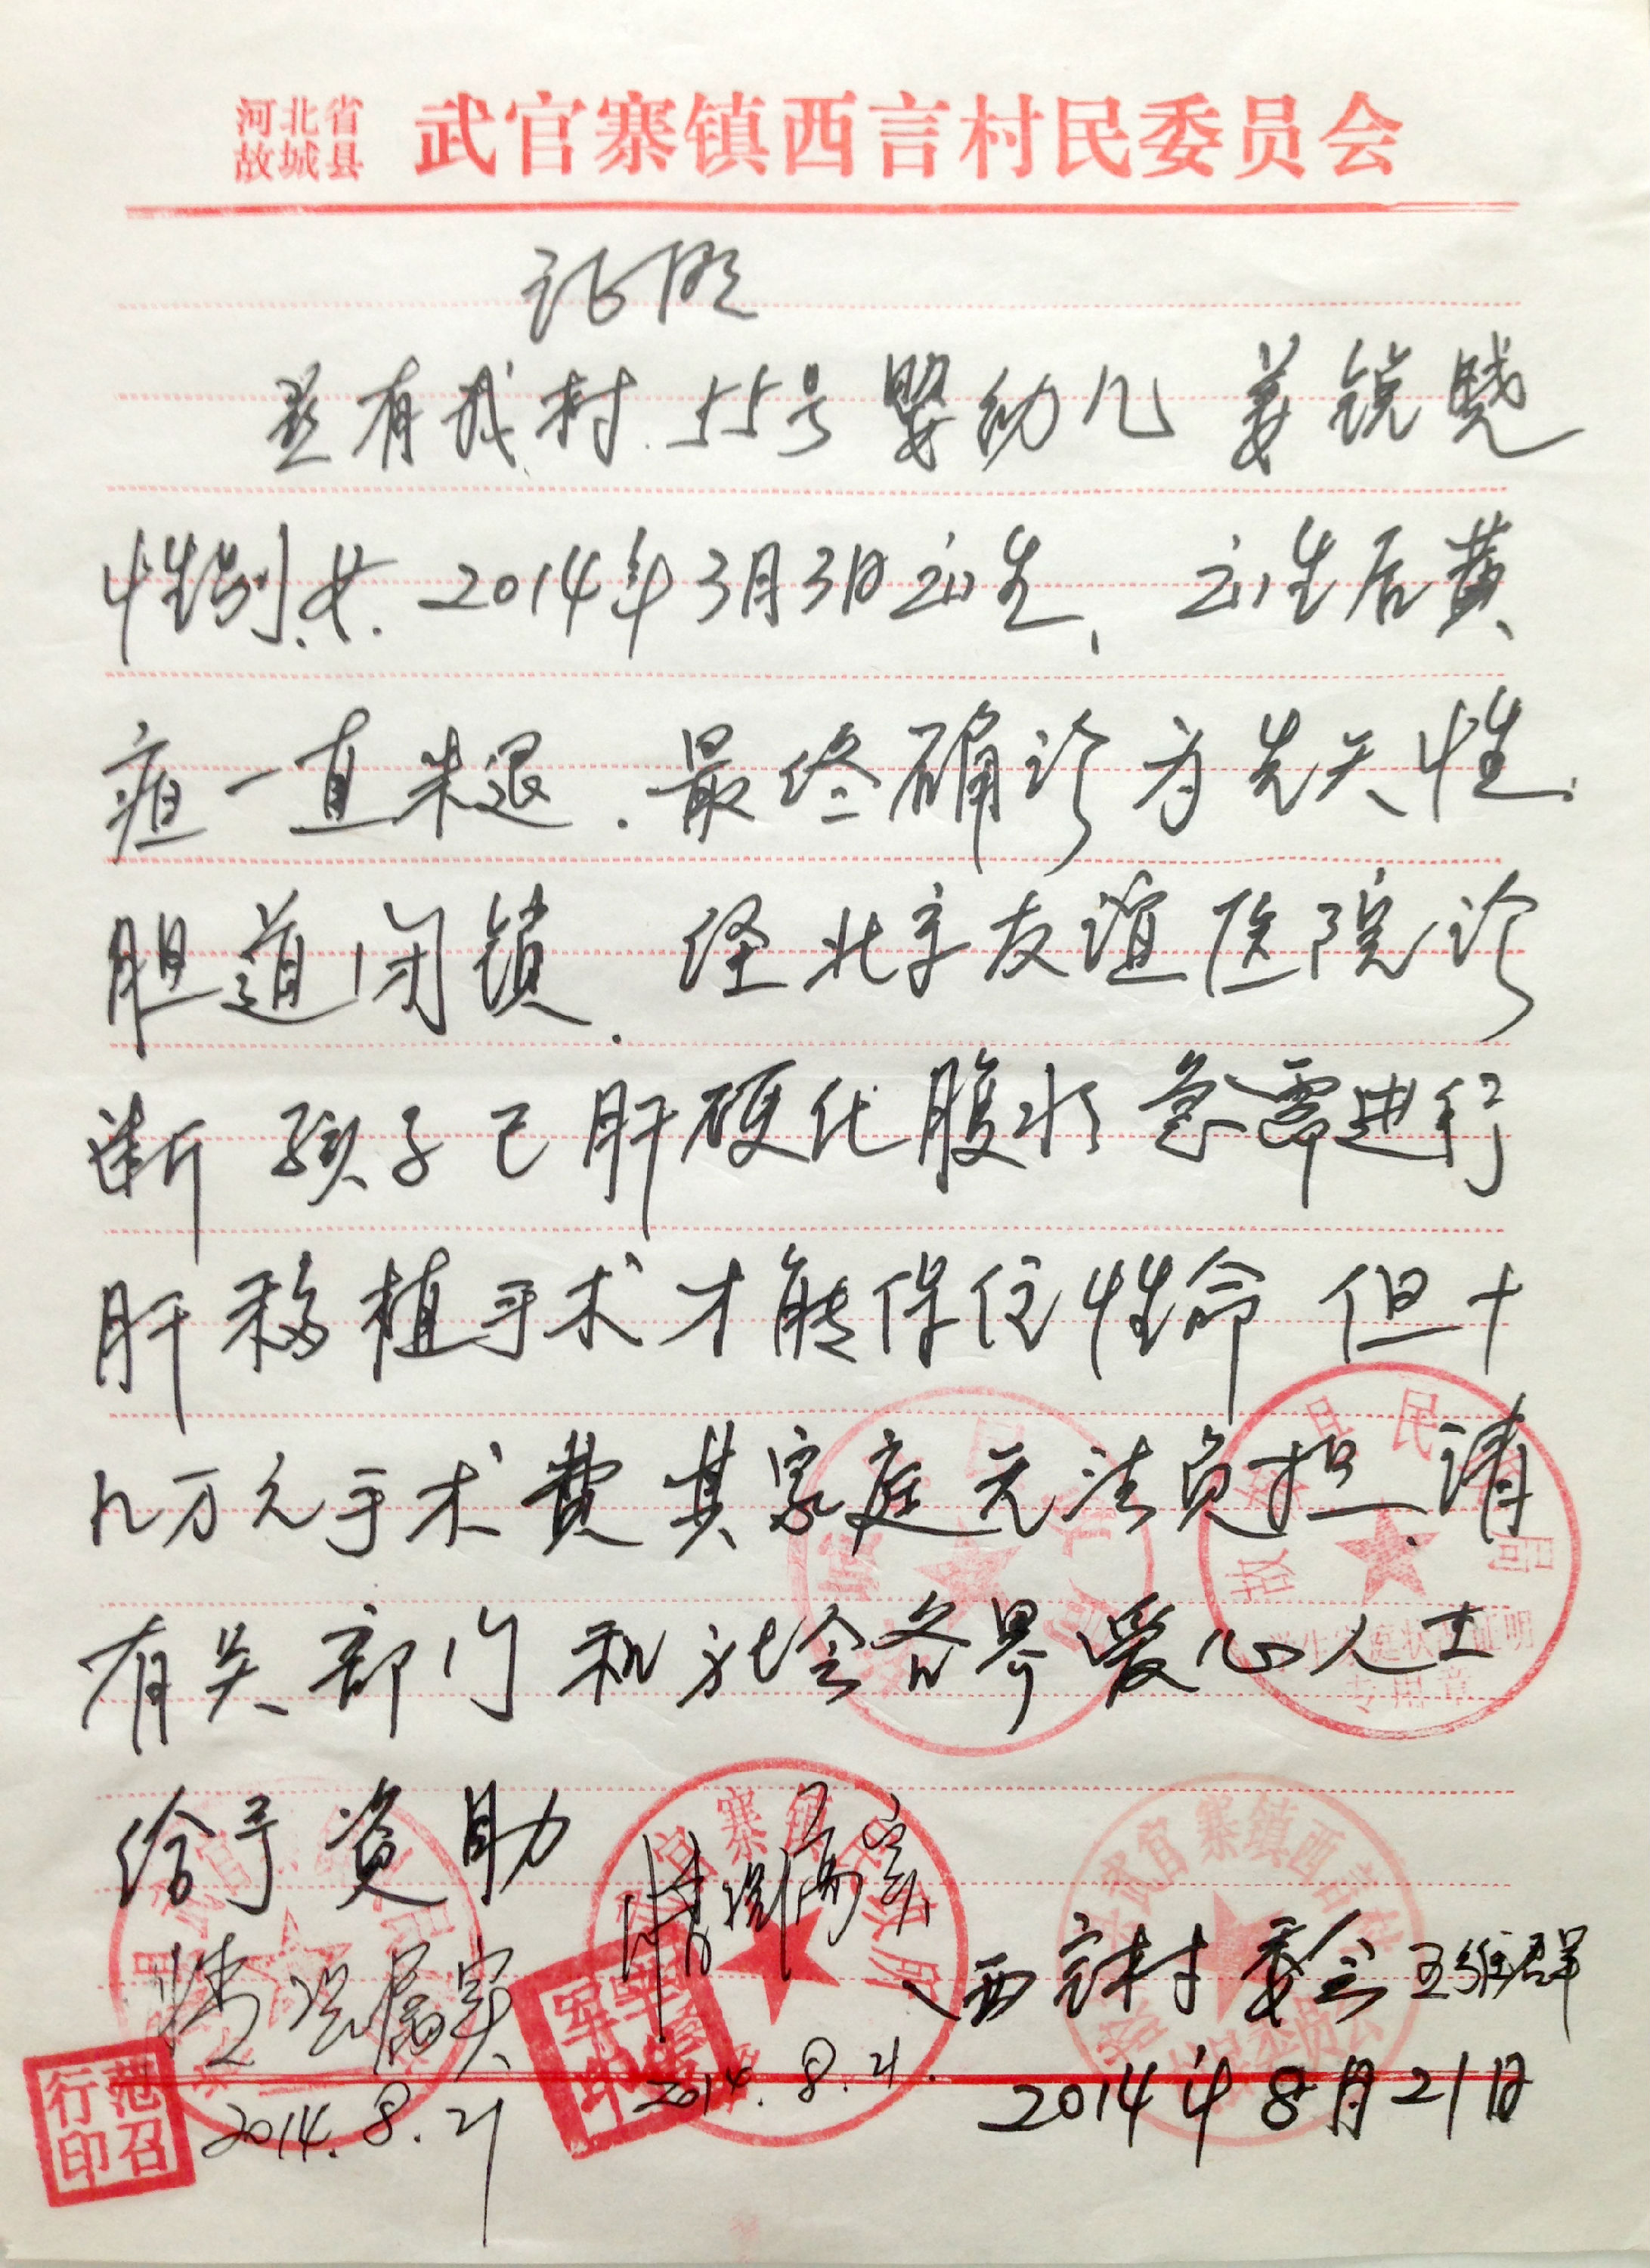 河北省
故城县
武官寨镇西言村民委员会
证明
兹有我村.55号婴幼儿 姜锐晓
性别.女. 2014年3月3日出生、出生后黄
疸一直未退.最终确诊为先天性.
胆道闭锁. 经北京友谊医院诊
断 孩子已肝硬化腹水 急需进行
肝移植手术才能保住性命 但十
几万元手术费其家庭无法负担.请
有关部门和社会各界爱心人士
给予资助
故城县民政局
学生家庭状况证明
专用章
武官寨镇西言村
情况属实
情况属实
西言村委会 王维群
2014.8.21
2014.8.21.
2014年8月21日
范召
行印